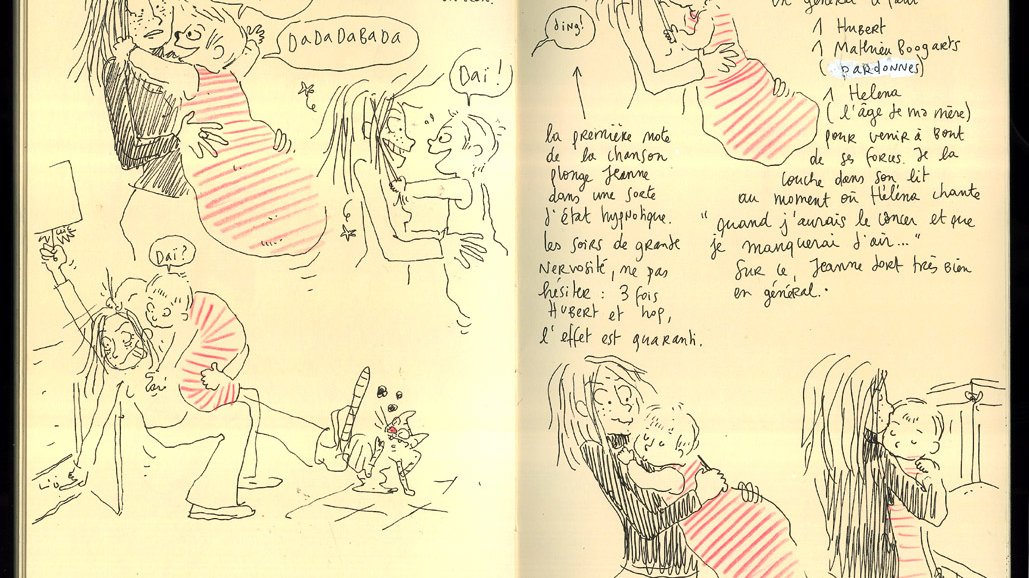 DADADABADA
Dai!
Dai?
ding!
la première note
de la chanson
plonge Jeanne
dans une sorte
d'état hypnotique.
les soirs de grande
Nervosité, ne pas
hésiter : 3 fois
Hubert et hop,
l'effet est guaranti.
en général il faut
1 Hubert
1 Mathieu Boogarts
(pardonnes)
1 Helena
(l'âge de ma mère)
pour venir à bout
de ses forces. Je la
couche dans son lit
au moment où Héléna chante
"quand j'aurais le cancer et que
je manquerai d'air..."
Sur ce, Jeanne dort très bien
en général.